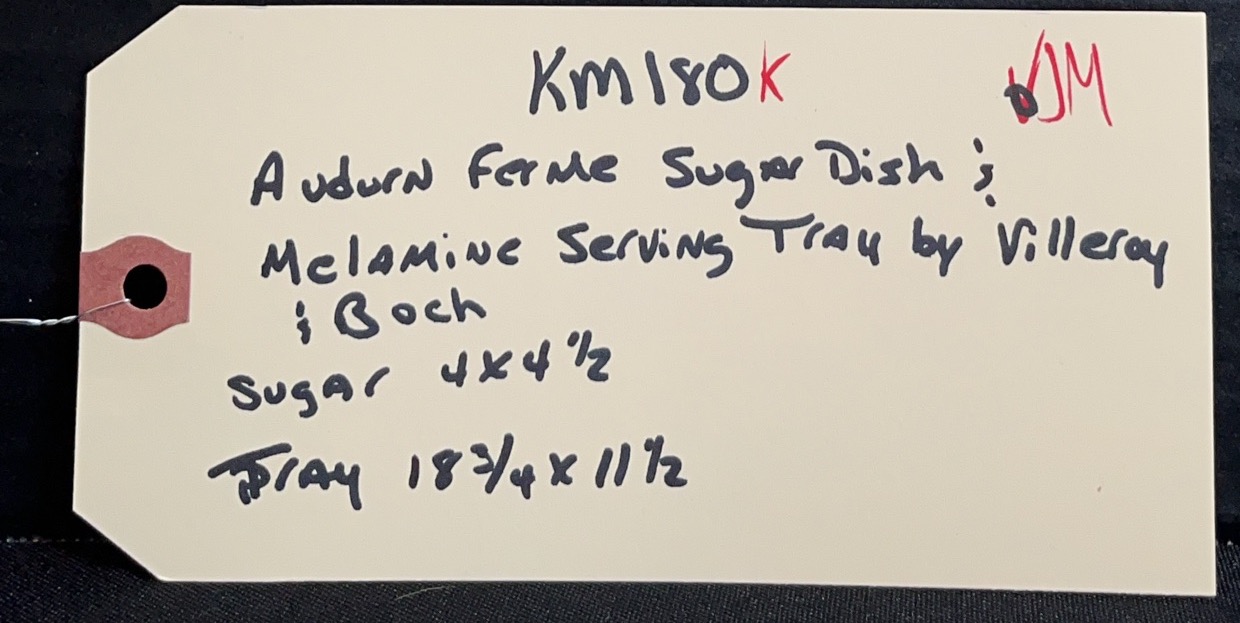 KM180K VJM
Audurn Ferme Sugar Dish &
Melamine Serving Tray by Villeroy
& Boch
Sugar 4x4 1/2
Tray 18 3/4 x 11 1/2